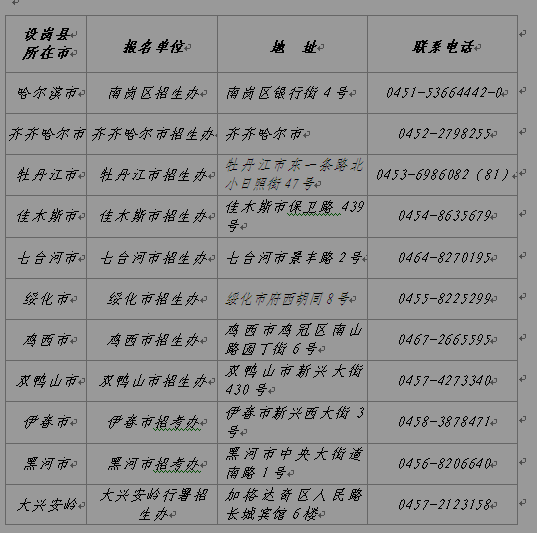 设岗县所在市 报名单位 地 址 联系电话
哈尔滨市 南岗区招生办 南岗区银行街4号 0451-53664442-0
齐齐哈尔市 齐齐哈尔市招生办 齐齐哈尔市 0452-2798255
牡丹江市 牡丹江市招生办 牡丹江市东一条路北小日照街47号 0453-6986082（81）
佳木斯市 佳木斯市招生办 佳木斯市保卫路439号 0454-8635679
七台河市 七台河市招生办 七台河市景丰路2号 0464-8270195
绥化市 绥化市招生办 绥化市府西胡同8号 0455-8225299
鸡西市 鸡西市招生办 鸡西市鸡冠区南山路园丁街6号 0467-2665595
双鸭山市 双鸭山市招生办 双鸭山市新兴大街430号 0457-4273340
伊春市 伊春市招考办 伊春市新兴西大街3号 0458-3878471
黑河市 黑河市招考办 黑河市中央大街道南路1号 0456-8206640
大兴安岭 大兴安岭行署招生办 加格达奇区人民路长城宾馆6楼 0457-2123158